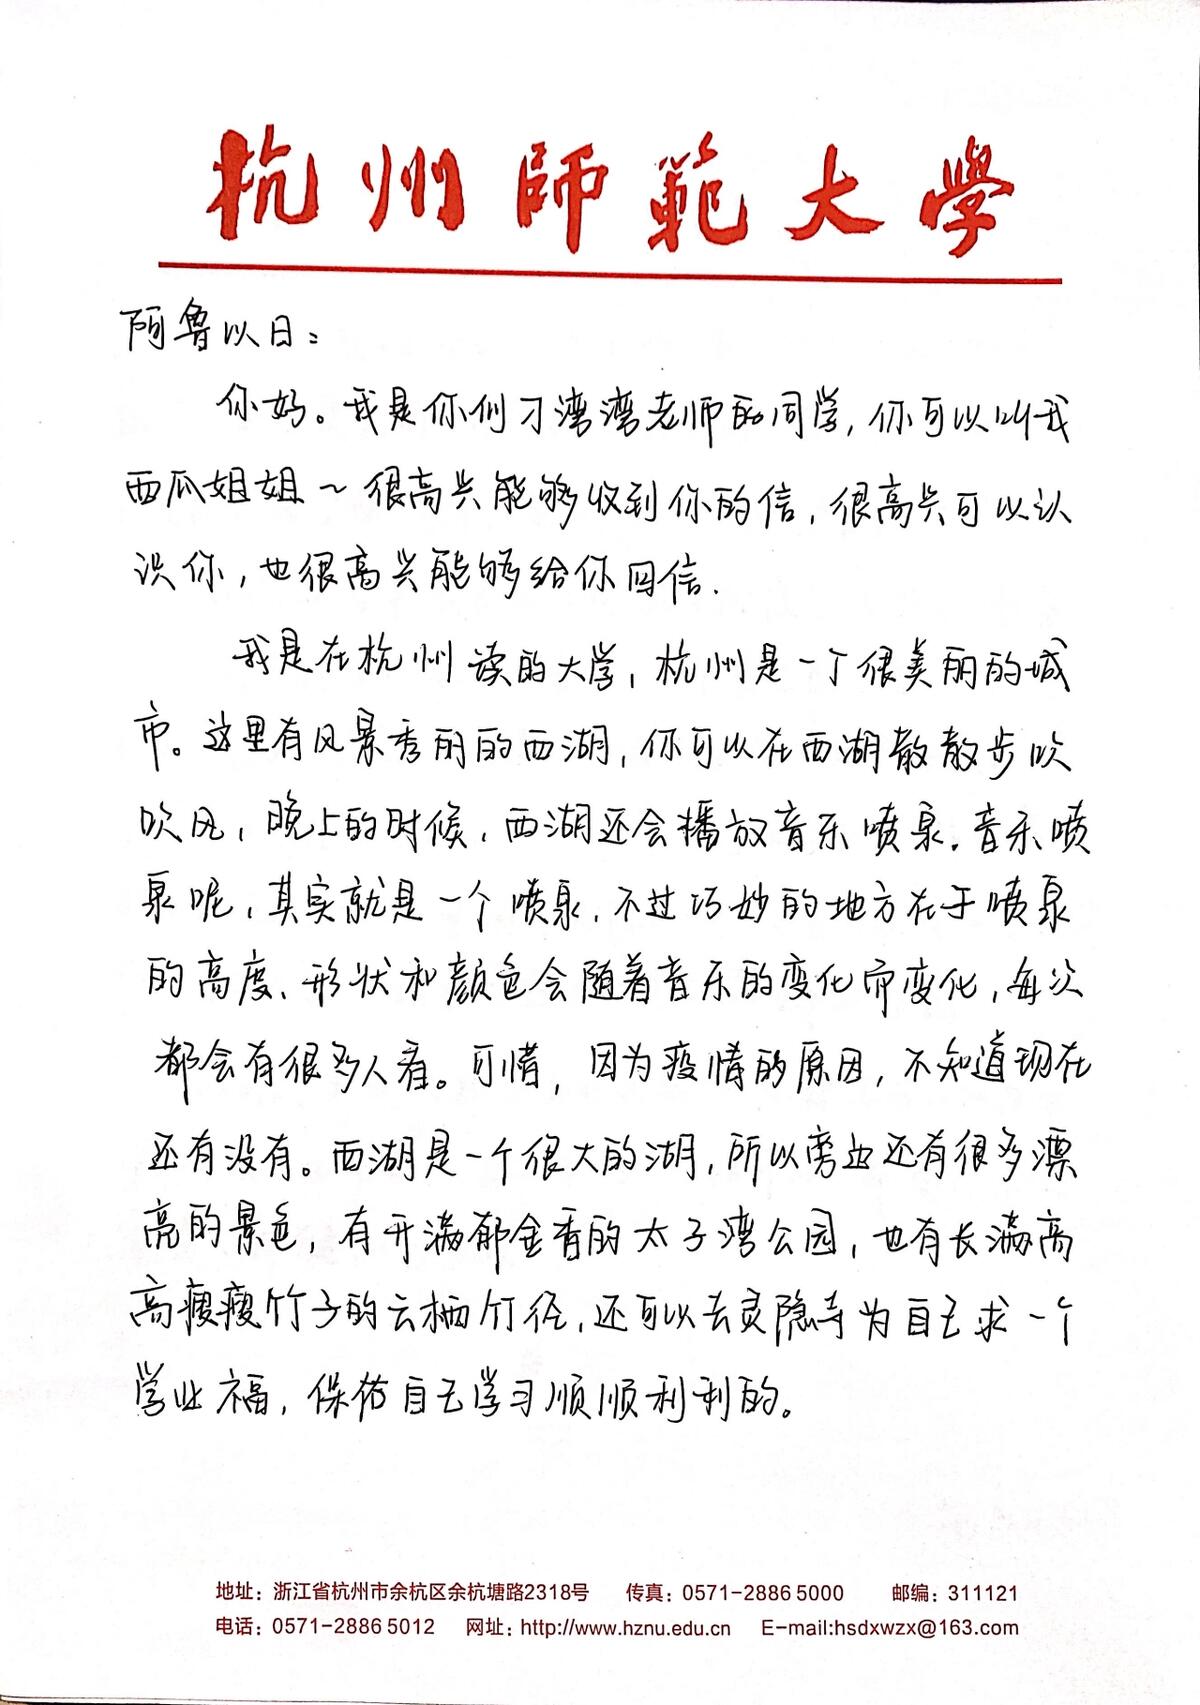 杭州師範大學
阿鲁以日：
你好。我是你们刁湾湾老师的同学，你可以叫我
西瓜姐姐～很高兴能够收到你的信，很高兴可以认
识你，也很高兴能够给你回信.
我是在杭州读的大学，杭州是一个很美丽的城
市。这里有风景秀丽的西湖，你可以在西湖散散步吹
吹风，晚上的时候，西湖还会播放音乐喷泉.音乐喷
泉呢，其实就是一个喷泉，不过巧妙的地方在于喷泉
的高度、形状和颜色会随着音乐的变化而变化，每次
都会有很多人看。可惜，因为疫情的原因，不知道现在
还有没有。西湖是一个很大的湖，所以旁边还有很多漂
亮的景色，有开满郁金香的太子湾公园，也有长满高
高瘦瘦竹子的云栖竹径，还可以去灵隐寺为自己求一个
学业福，保佑自己学习顺顺利利的。
地址：浙江省杭州市余杭区余杭塘路2318号 传真：0571-2886 5000 邮编：311121
电话：0571-2886 5012 网址：http://www.hznu.edu.cn E-mail:hsdxwzx@163.com